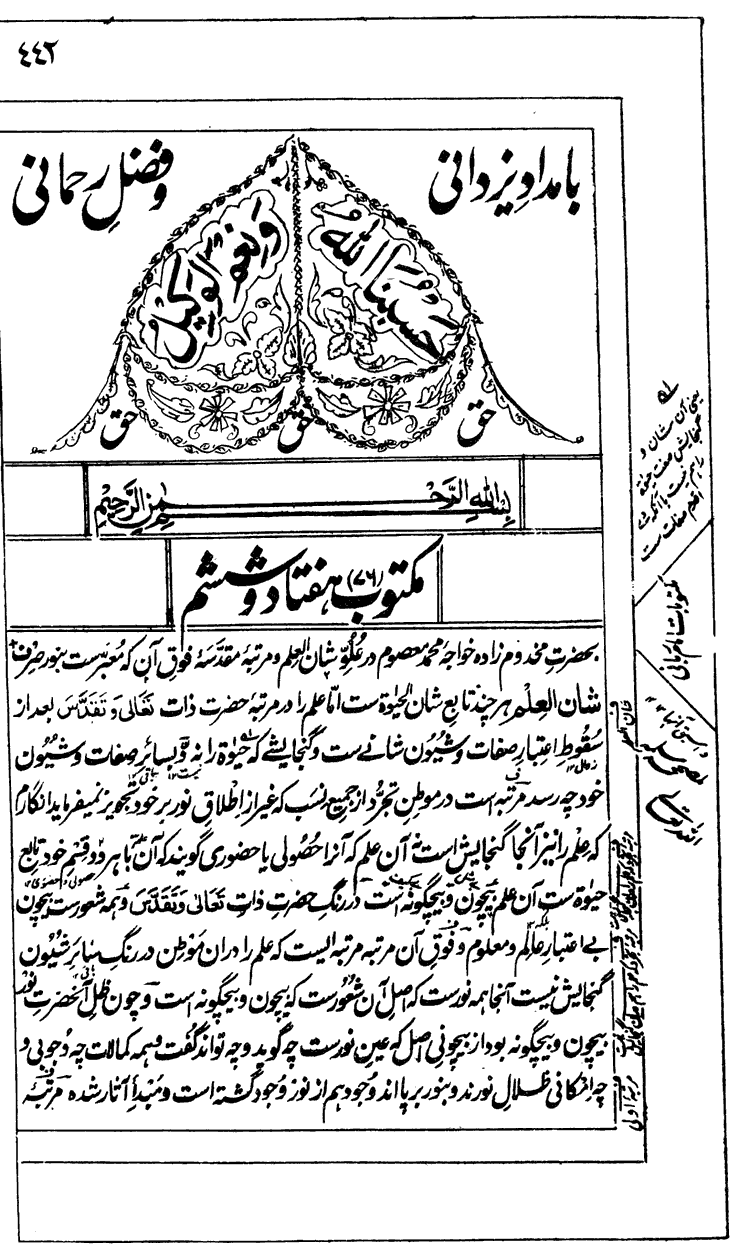 ٤٤٢
بامدادِ یزدانی
و فضلِ رحمانی
حَسبُنَا اللّٰهُ
وَنِعمَ الوَکِیلُ
حق حق حق
بِسمِ اللّٰهِ الرَّحمٰنِ الرَّحِیمِ
مکتوب (۷۶) هفتاد و ششم
بحضرت مخدوم زاده خواجه محمد معصوم در عُلُوِّ شان العلم و مرتبهٔ مقدسهٔ فوق آن که مُعَبَّرست بنور صِرف
شان العِلم هر چند تابع شان الحیٰوة ست امّا علم را در مرتبه حضرت ذات تَعَالٰی وَ تَقَدَّسَ بعد از
سُقوطِ اعتبار صفات و شیُون شانے ست و گنجایشے که حیٰوة را نه و بسائر صفات و شیُون
خود چه رسد مرتبه است در موطن تجرُّد از جمیع نِسَب که غیر از اطلاق نور بر خود تجویز نمیفرماید انگارم
که علم را نیز آنجا گنجایش است نه آن علم که آنرا حُصُولی یا حضوری گویند که آن با هر دو قسم خود تابع
حیٰوة ست آن علم بیچون و بیچگونه است در رنگِ حضرتِ ذات تَعَالٰی وَتَقَدَّسَ و همه شعورست بیچون
بے اعتبار عالِم و معلوم و فوق آن مرتبه مرتبه ایست که علم را دران مَوطِن در رنگ سائر شیُون
گنجایش نیست آنجا همه نورست که اصل آن شعُورست که بیچون و بیچگونه است و چون ظلِ آنحضرتِ نور
بیچون و بیچگونه بود از بیچونی اصل که عین نورست چه گوید و چه تواند گفت و همه کمالات چه وُجوبی و
چه امکانی ظلال نورند و بنور برپا اند وجود هم از نور وجود گشته است و مَبدأِ آثار شده مرتبهٔ
یعنی آن شان و
مکتوبات امام ربانی
مرتبهٔ اولی